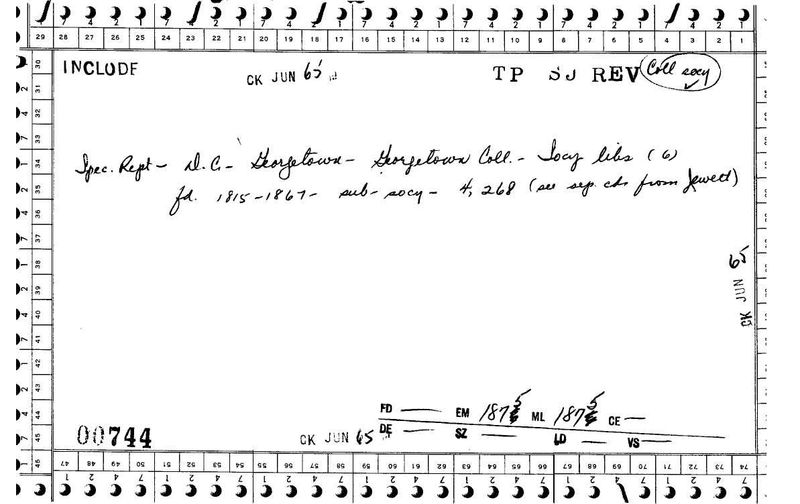 29 28 27 26 25 24 23 22 21 20 19 18 17 16 15 14 13 12 11 10 9 8 7 6 5 4 3 2 1
INCLUDE CK JUN 65 TP SJ REV Coll socy
Spec. Rept - D.C. - Georgetown - Georgetown Coll. - Socy libs (6)
fd. 1815-1867 - sub - socy - 4,268 (see sep. cds from Jewett)
CK JUN 65
FD — EM 1875 ML 1875 CE —
00744 CK JUN 65 DE — SZ — LD — VS —
47 48 49 50 51 52 53 54 55 56 57 58 59 60 61 62 63 64 65 66 67 68 69 70 71 72 73 74